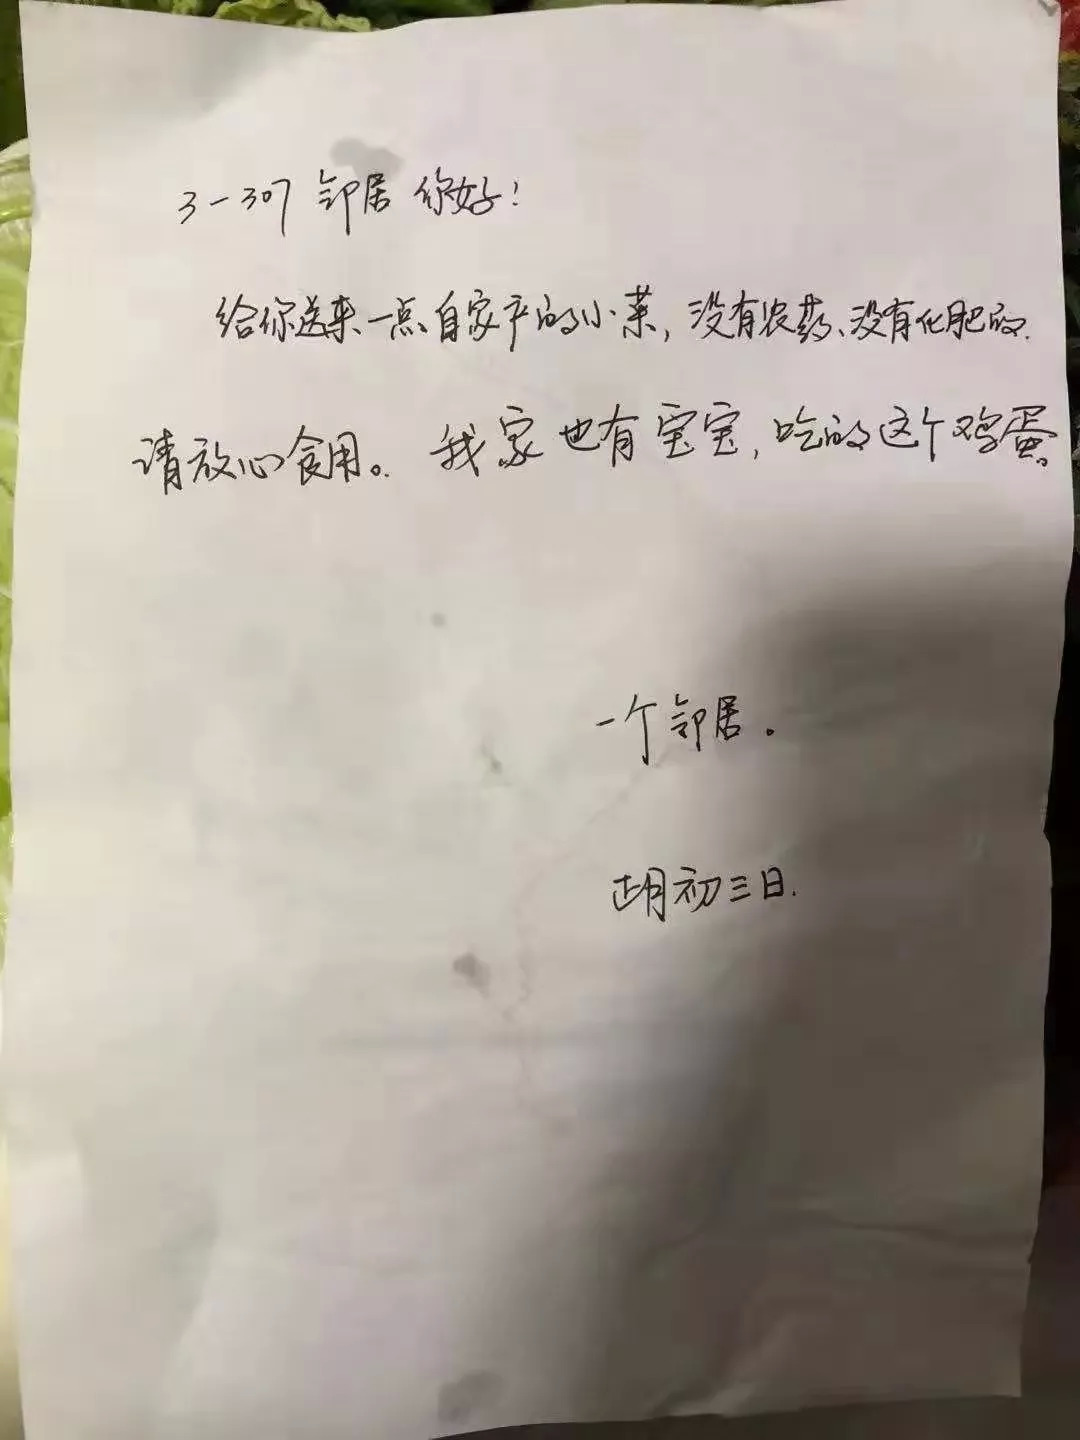 3-307 邻居 你好!
给你送来一点自家产的小菜,没有农药、没有化肥的.
请放心食用。我家也有宝宝,吃的这个鸡蛋。
一个邻居。
正月初三日.